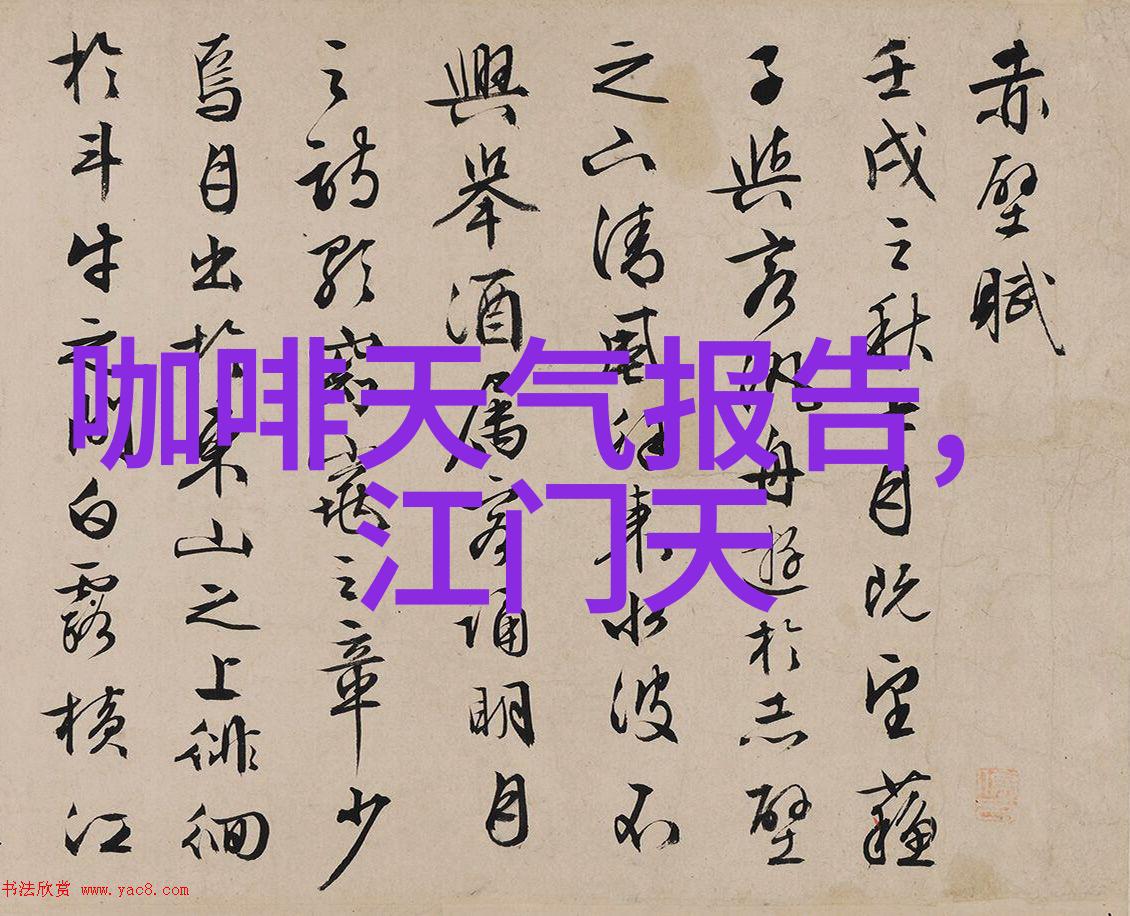 赤壁賦
壬戌之秋七月既望蘓
子與客泛舟遊於赤壁
之下清風徐來水波不
興舉酒屬客誦明月
之詩歌窈窕之章少
焉月出於東山之上徘徊
於斗牛之間白露橫江
咖啡天气报告，
江门天
书法欣赏 www.yac8.com